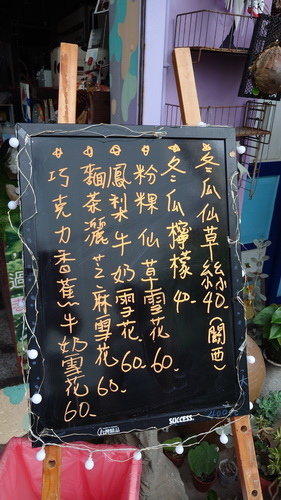 冬瓜仙草絲40(關西)
冬瓜檸檬40-
粉粿仙草雪花60-
鳳梨牛奶雪花60-
麵茶灑芝麻雪花60-
巧克力香蕉牛奶雪花60-
SUCCESS